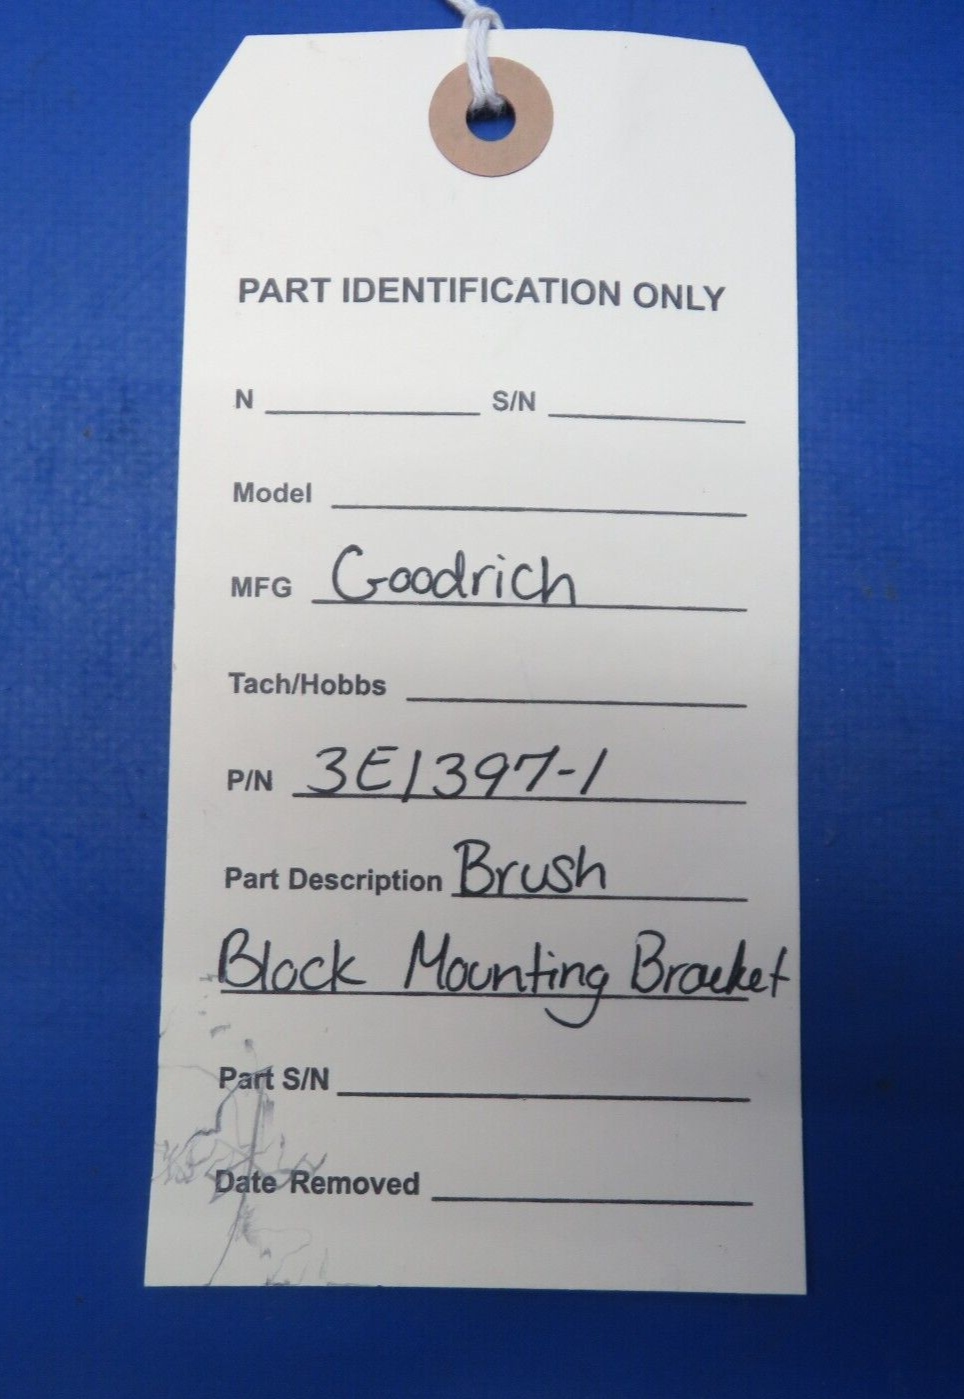 PART IDENTIFICATION ONLY
N S/N
Model
MFG Goodrich
Tach/Hobbs
P/N 3E1397-1
Part Description Brush
Block Mounting Bracket
Part S/N
Date Removed